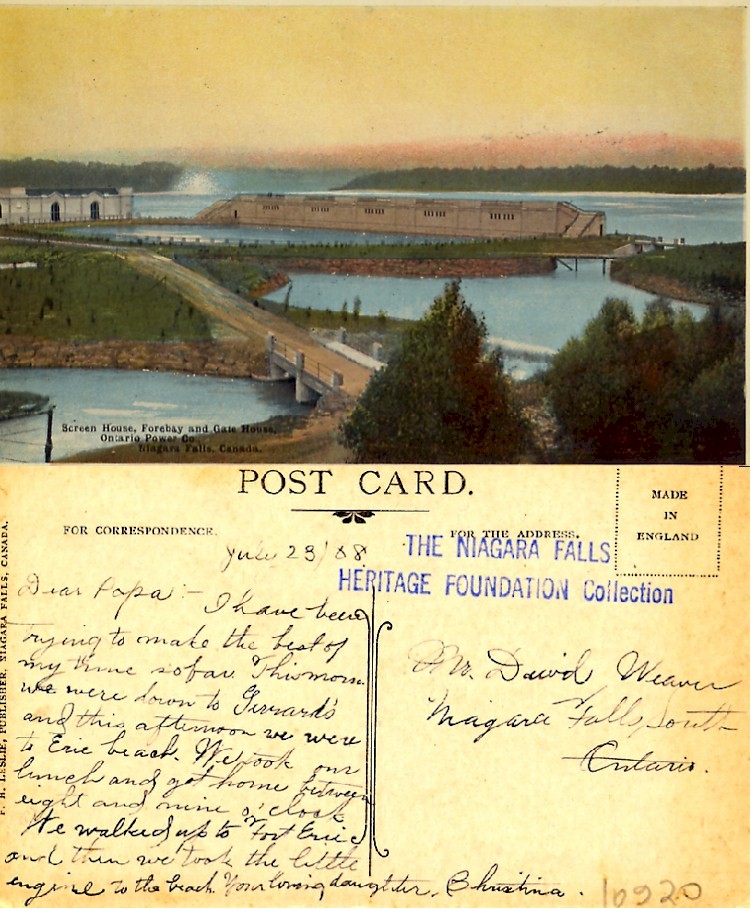 Screen House, Forebay and Gate House,
Ontario Power Co.
Niagara Falls, Canada.
POST CARD.
FOR CORRESPONDENCE.
FOR THE ADDRESS.
MADE
IN
ENGLAND
THE NIAGARA FALLS
HERITAGE FOUNDATION Collection
F. H. LESLIE, PUBLISHER, NIAGARA FALLS, CANADA.
July 23/08
Dear Papa:-
I have been
trying to make the best of
my time so far. This morn.
we were down to Gerrard's
and this afternoon we were
to Erie beach. We took our
lunch and got home between
eight and nine o'clock
We walked up to Fort Erie
and then we took the little
engine to the beach. Your loving daughter, Christina.
Mr. David Weaver
Niagara Falls, South
Ontario.
10920